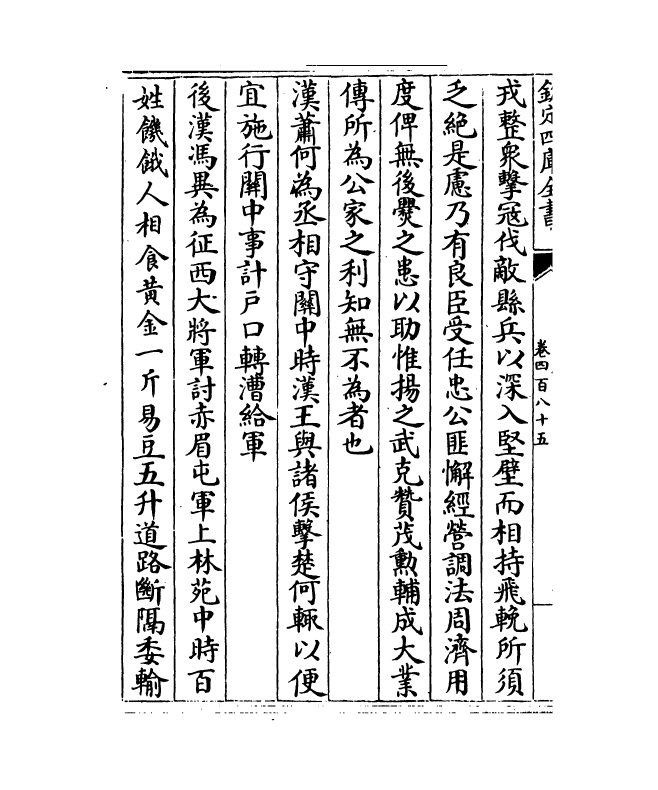 欽定四庫全書
卷四百八十五
戎整衆擊寇伐敵縣兵以深入堅壁而相持飛輓所須
乏絶是慮乃有良臣受任忠公匪懈經營調法周濟用
度俾無後爂之患以助惟揚之武克贊茂勳輔成大業
傳所為公家之利知無不為者也
漢蕭何為丞相守關中時漢王與諸侯擊楚何輒以便
宜施行關中事計戶口轉漕給軍
後漢馮異為征西大將軍討赤眉屯軍上林苑中時百
姓饑餓人相食黄金一斤易豆五升道路斷隔委輸